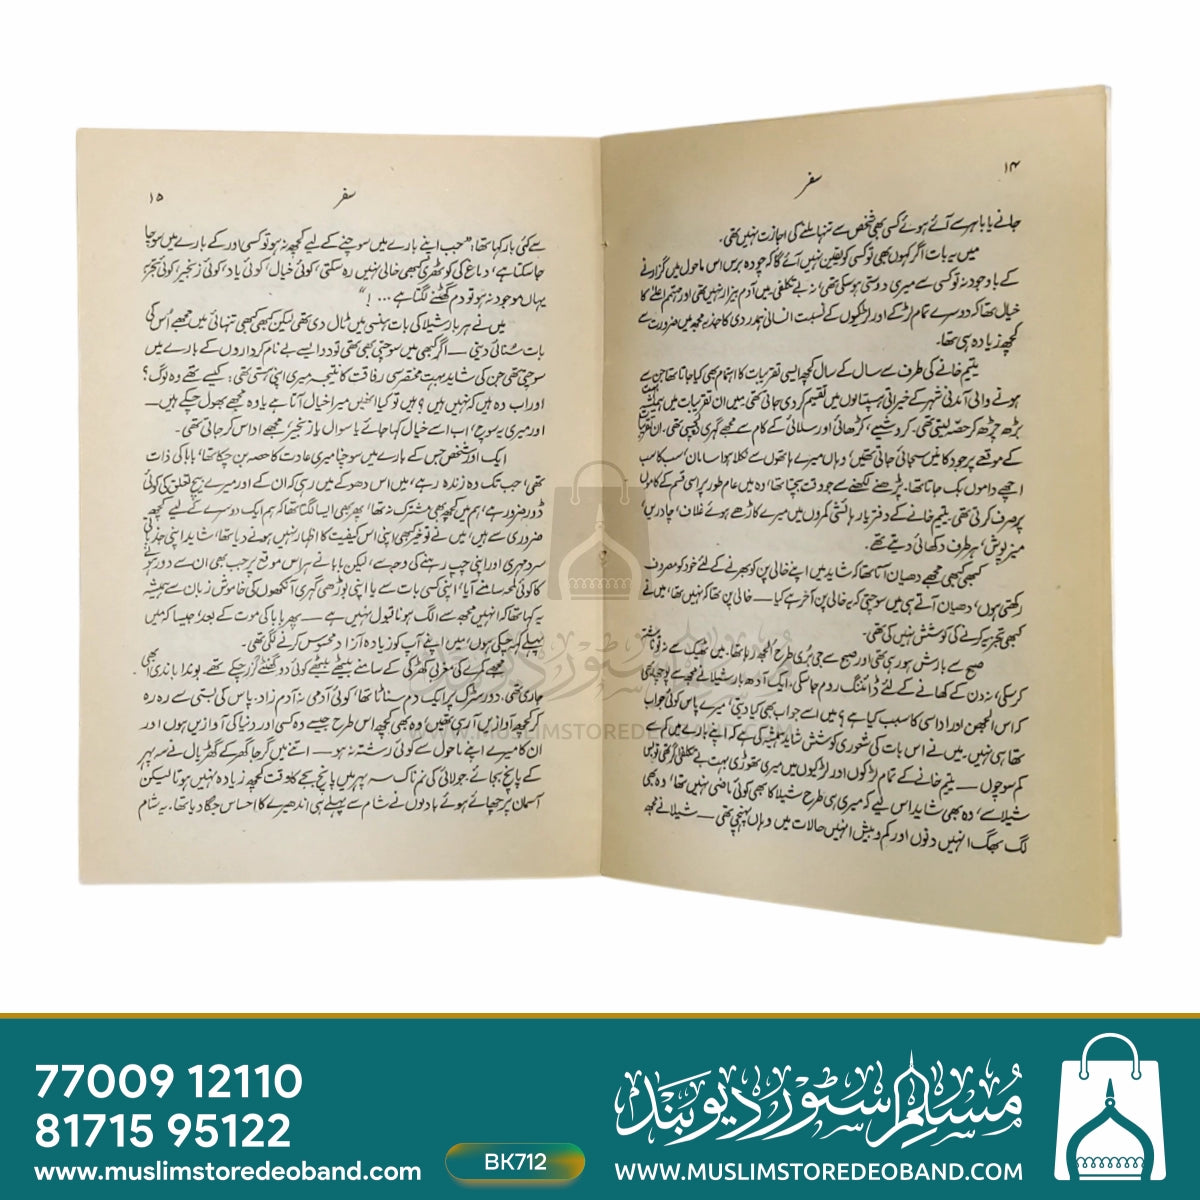 ۱۴
سفر
جانے یا باہر سے آئے ہوئے کسی بھی شخص سے تنہا ملنے کی اجازت نہیں تھی۔
میں یہ بات اگر کہوں بھی تو کسی کو یقین نہیں آئے گا کہ چودہ برس اس ماحول میں گزارنے
کے باوجود نہ تو کسی سے میری دوستی ہو سکی تھی، نہ بے تکلفی، میں آدم بیزار نہیں تھی اور مہتمم اعلیٰ کا
خیال تھا کہ دوسرے تمام لڑکے اور لڑکیوں کے نسبت انسانی ہمدردی کا جذبہ مجھ میں ضرورت سے
کچھ زیادہ ہی تھا۔
یتیم خانے کی طرف سے سال کے سال کچھ ایسی تقریبات کا اہتمام بھی کیا جاتا تھا جن سے
ہونے والی آمدنی شہر کے خیراتی ہسپتالوں میں تقسیم کر دی جاتی تھی۔ میں ان تقریبات میں ہمیشہ
بڑھ چڑھ کر حصہ لیتی تھی۔ کروشیے، کڑھائی اور سلائی کے کام سے مجھے گہری دلچسپی تھی۔ ان تقریبات
کے موقعے پر جو دکانیں سجائی جاتی تھیں، وہاں میرے ہاتھوں سے نکلا ہوا سامان، سب کا سب
اچھے داموں بک جاتا تھا۔ پڑھنے لکھنے سے جو وقت بچتا تھا، وہ میں عام طور پر اسی قسم کے کاموں
پر صرف کرتی تھی۔ یتیم خانے کے دفتر یا رہائشی کمروں میں میرے کاڑھے ہوئے غلاف، چادریں،
میز پوش، ہر طرف دکھائی دیتے تھے۔
کبھی کبھی مجھے دھیان آتا تھا کہ شاید میں اپنے خالی پن کو بھرنے کے لئے خود کو مصروف
رکھتی ہوں، دھیان آتے ہی میں سوچتی کہ یہ خالی پن آخر ہے کیا — خالی پن تھا کہ نہیں تھا، میں نے
کبھی تجزیہ کرنے کی کوشش نہیں کی تھی۔
صبح سے بارش ہو رہی تھی اور صبح سے جی بُری طرح الجھ رہا تھا۔ میں ٹھیک سے نہ تو ناشتہ
کر سکی، نہ دن کے کھانے کے لئے ڈائننگ روم جا سکی، ایک آدھ بار شیلا نے مجھ سے پوچھا بھی
کہ اس الجھن اور اداسی کا سبب کیا ہے؟ میں اسے جواب بھی کیا دیتی، میرے پاس کوئی جواب
تھا ہی نہیں۔ میں نے اس بات کی شعوری کوشش شاید ہمیشہ کی ہے کہ اپنے بارے میں کم سے
کم سوچوں — یتیم خانے کے تمام لڑکوں اور لڑکیوں میں میری تھوڑی بہت بے تکلفی اگر تھی تو بس
شیلا سے، وہ بھی شاید اس لیے کہ میری ہی طرح شیلا کا بھی کوئی ماضی نہیں تھا، وہ بھی
لگ بھگ انہیں دنوں اور کم و بیش انہیں حالات میں وہاں پہنچی تھی — شیلا نے مجھ
سفر
۱۵
سے کئی بار کہا تھا: "جب اپنے بارے میں سوچنے کے لیے کچھ نہ ہو تو کسی اور کے بارے میں سوچا
جا سکتا ہے، دماغ کی کوٹھری کبھی خالی نہیں رہ سکتی، کوئی خیال، کوئی یاد، کوئی زنجیر، کوئی تجزیہ
یہاں موجود نہ ہو تو دم گھٹنے لگتا ہے . . . !"
میں نے ہر بار شیلا کی بات ہنسی میں ٹال دی تھی لیکن کبھی کبھی تنہائی میں مجھے اُس کی
بات سُنائی دیتی — اگر کبھی میں سوچتی بھی تھی تو دو ایسے بے نام کرداروں کے بارے میں
سوچتی تھی جن کی شاید بہت مختصر سی رفاقت کا نتیجہ میری اپنی ہستی تھی: کیسے تھے وہ لوگ؟
اور اب وہ ہیں کہ نہیں ہیں؟ ہیں تو کیا انہیں میرا خیال آتا ہے یا وہ مجھے بھول چکے ہیں —
اور میری یہ سوچ، اب اسے خیال کہا جائے یا سوال یا زنجیر، مجھے اداس کر جاتی تھی۔
ایک اور شخص جس کے بارے میں سوچنا میری عادت کا حصہ بن چکا تھا، بابا کی ذات
تھی، جب تک وہ زندہ رہے، میں اس دھوکے میں رہی کہ ان کے اور میرے بیچ تعلق کی کوئی
ڈور ضرور ہے، ہم میں کچھ بھی مشترک نہ تھا، پھر بھی ایسا لگتا تھا کہ ہم ایک دوسرے کے لیے کچھ
ضروری سے ہیں، میں نے تو خیر کبھی اپنی اس کیفیت کا اظہار نہیں ہونے دیا تھا، شاید اپنی جذباتی
سرد مہری اور اپنی چپ رہنے کی وجہ سے، لیکن بابا نے ہر اس موقع پر جب بھی ان سے دور ہونے
کا کوئی لمحہ سامنے آیا، اپنی کسی بات سے یا اپنی بوڑھی گہری آنکھوں کی خاموش زبان سے ہمیشہ
یہ کہا تھا کہ انہیں مجھ سے الگ ہونا قبول نہیں ہے — پھر بابا کی موت کے بعد، جیسا کہ میں
پہلے کہہ چکی ہوں، میں اپنے آپ کو زیادہ آزاد محسوس کرنے لگی تھی۔
مجھے کمرے کی مغربی کھڑکی کے سامنے بیٹھے بیٹھے کوئی دو گھنٹے گزر چکے تھے۔ بوندا باندی ابھی
جاری تھی۔ دور سڑک پر ایک دم سناٹا تھا، کوئی آدمی نہ آدم زاد۔ پاس کی بستی سے رہ رہ
کر کچھ آوازیں آ رہی تھیں، وہ بھی کچھ اس طرح جیسے وہ کسی اور دنیا کی آوازیں ہوں اور
ان کا میرے اپنے ماحول سے کوئی رشتہ نہ ہو — اتنے میں گرجا گھر کے گھڑیال نے سہ پہر
کے پانچ بجائے۔ جولائی کی نم ناک سہ پہر میں پانچ بجے کا وقت کچھ زیادہ نہیں ہوتا لیکن
آسمان پر چھائے ہوئے بادلوں نے شام سے پہلے ہی اندھیرے کا احساس جگا دیا تھا۔ یہ شام
مسلم سٹور دیوبند
WWW.MUSLIMSTOREDEOBAND.COM
77009 12110
81715 95122
www.muslimstoredeoband.com
BK712
مسلم سٹور دیوبند
WWW.MUSLIMSTOREDEOBAND.COM